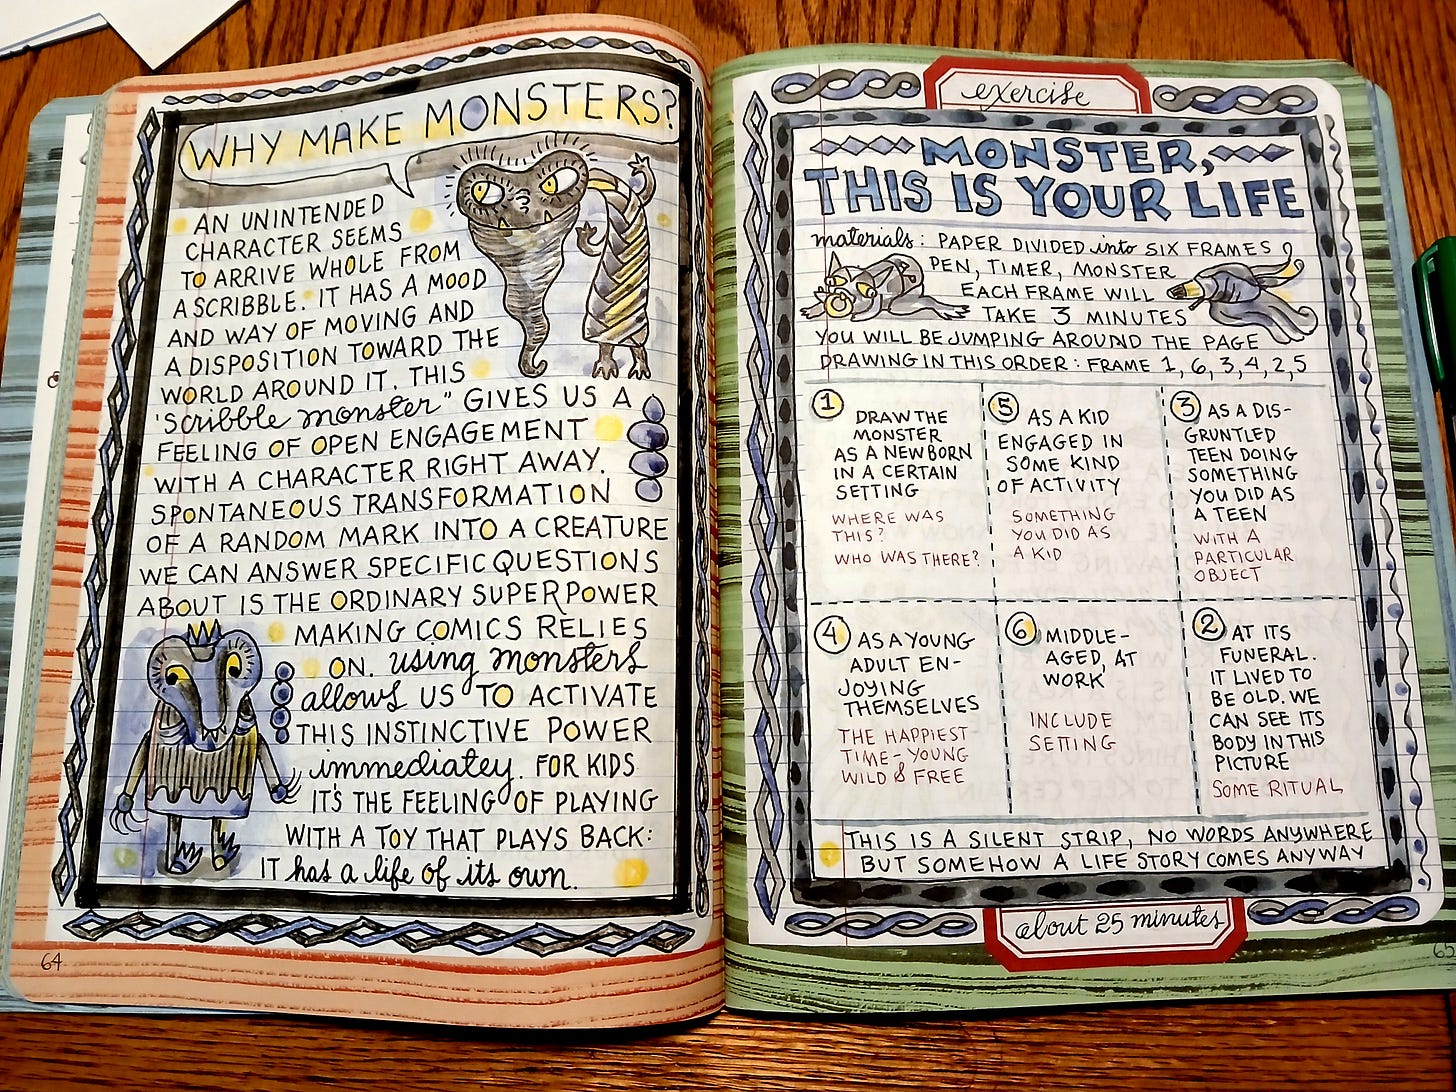 WHY MAKE MONSTERS?
AN UNINTENDED
CHARACTER SEEMS
TO ARRIVE WHOLE FROM
A SCRIBBLE. IT HAS A MOOD
AND WAY OF MOVING AND
A DISPOSITION TOWARD THE
WORLD AROUND IT. THIS
'Scribble monster" GIVES US A
FEELING OF OPEN ENGAGEMENT
WITH A CHARACTER RIGHT AWAY.
SPONTANEOUS TRANSFORMATION
OF A RANDOM MARK INTO A CREATURE
WE CAN ANSWER SPECIFIC QUESTIONS
ABOUT IS THE ORDINARY SUPERPOWER
MAKING COMICS RELIES
ON. using monsters
allows US TO ACTIVATE
THIS INSTINCTIVE POWER
immediatey. FOR KIDS
IT'S THE FEELING OF PLAYING
WITH A TOY THAT PLAYS BACK:
IT has a life of its own.
64
exercise
MONSTER,
THIS IS YOUR LIFE
materials: PAPER DIVIDED into SIX FRAMES
PEN, TIMER, MONSTER
EACH FRAME WILL
TAKE 3 MINUTES
YOU WILL BE JUMPING AROUND THE PAGE
DRAWING IN THIS ORDER: FRAME 1, 6, 3, 4, 2, 5
1 DRAW THE
MONSTER
AS A NEWBORN
IN A CERTAIN
SETTING
WHERE WAS
THIS?
WHO WAS THERE?
5 AS A KID
ENGAGED IN
SOME KIND
OF ACTIVITY
SOMETHING
YOU DID AS
A KID
3 AS A DIS-
GRUNTLED
TEEN DOING
SOMETHING
YOU DID AS
A TEEN
WITH A
PARTICULAR
OBJECT
4 AS A YOUNG
ADULT EN-
JOYING
THEMSELVES
THE HAPPIEST
TIME-YOUNG
WILD & FREE
6 MIDDLE-
AGED, AT
WORK
INCLUDE
SETTING
2 AT ITS
FUNERAL.
IT LIVED TO
BE OLD. WE
CAN SEE ITS
BODY IN THIS
PICTURE
SOME RITUAL
THIS IS A SILENT STRIP, NO WORDS ANYWHERE
BUT SOMEHOW A LIFE STORY COMES ANYWAY
about 25 minutes
65